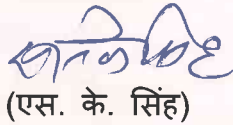 (एस. के. सिंह)